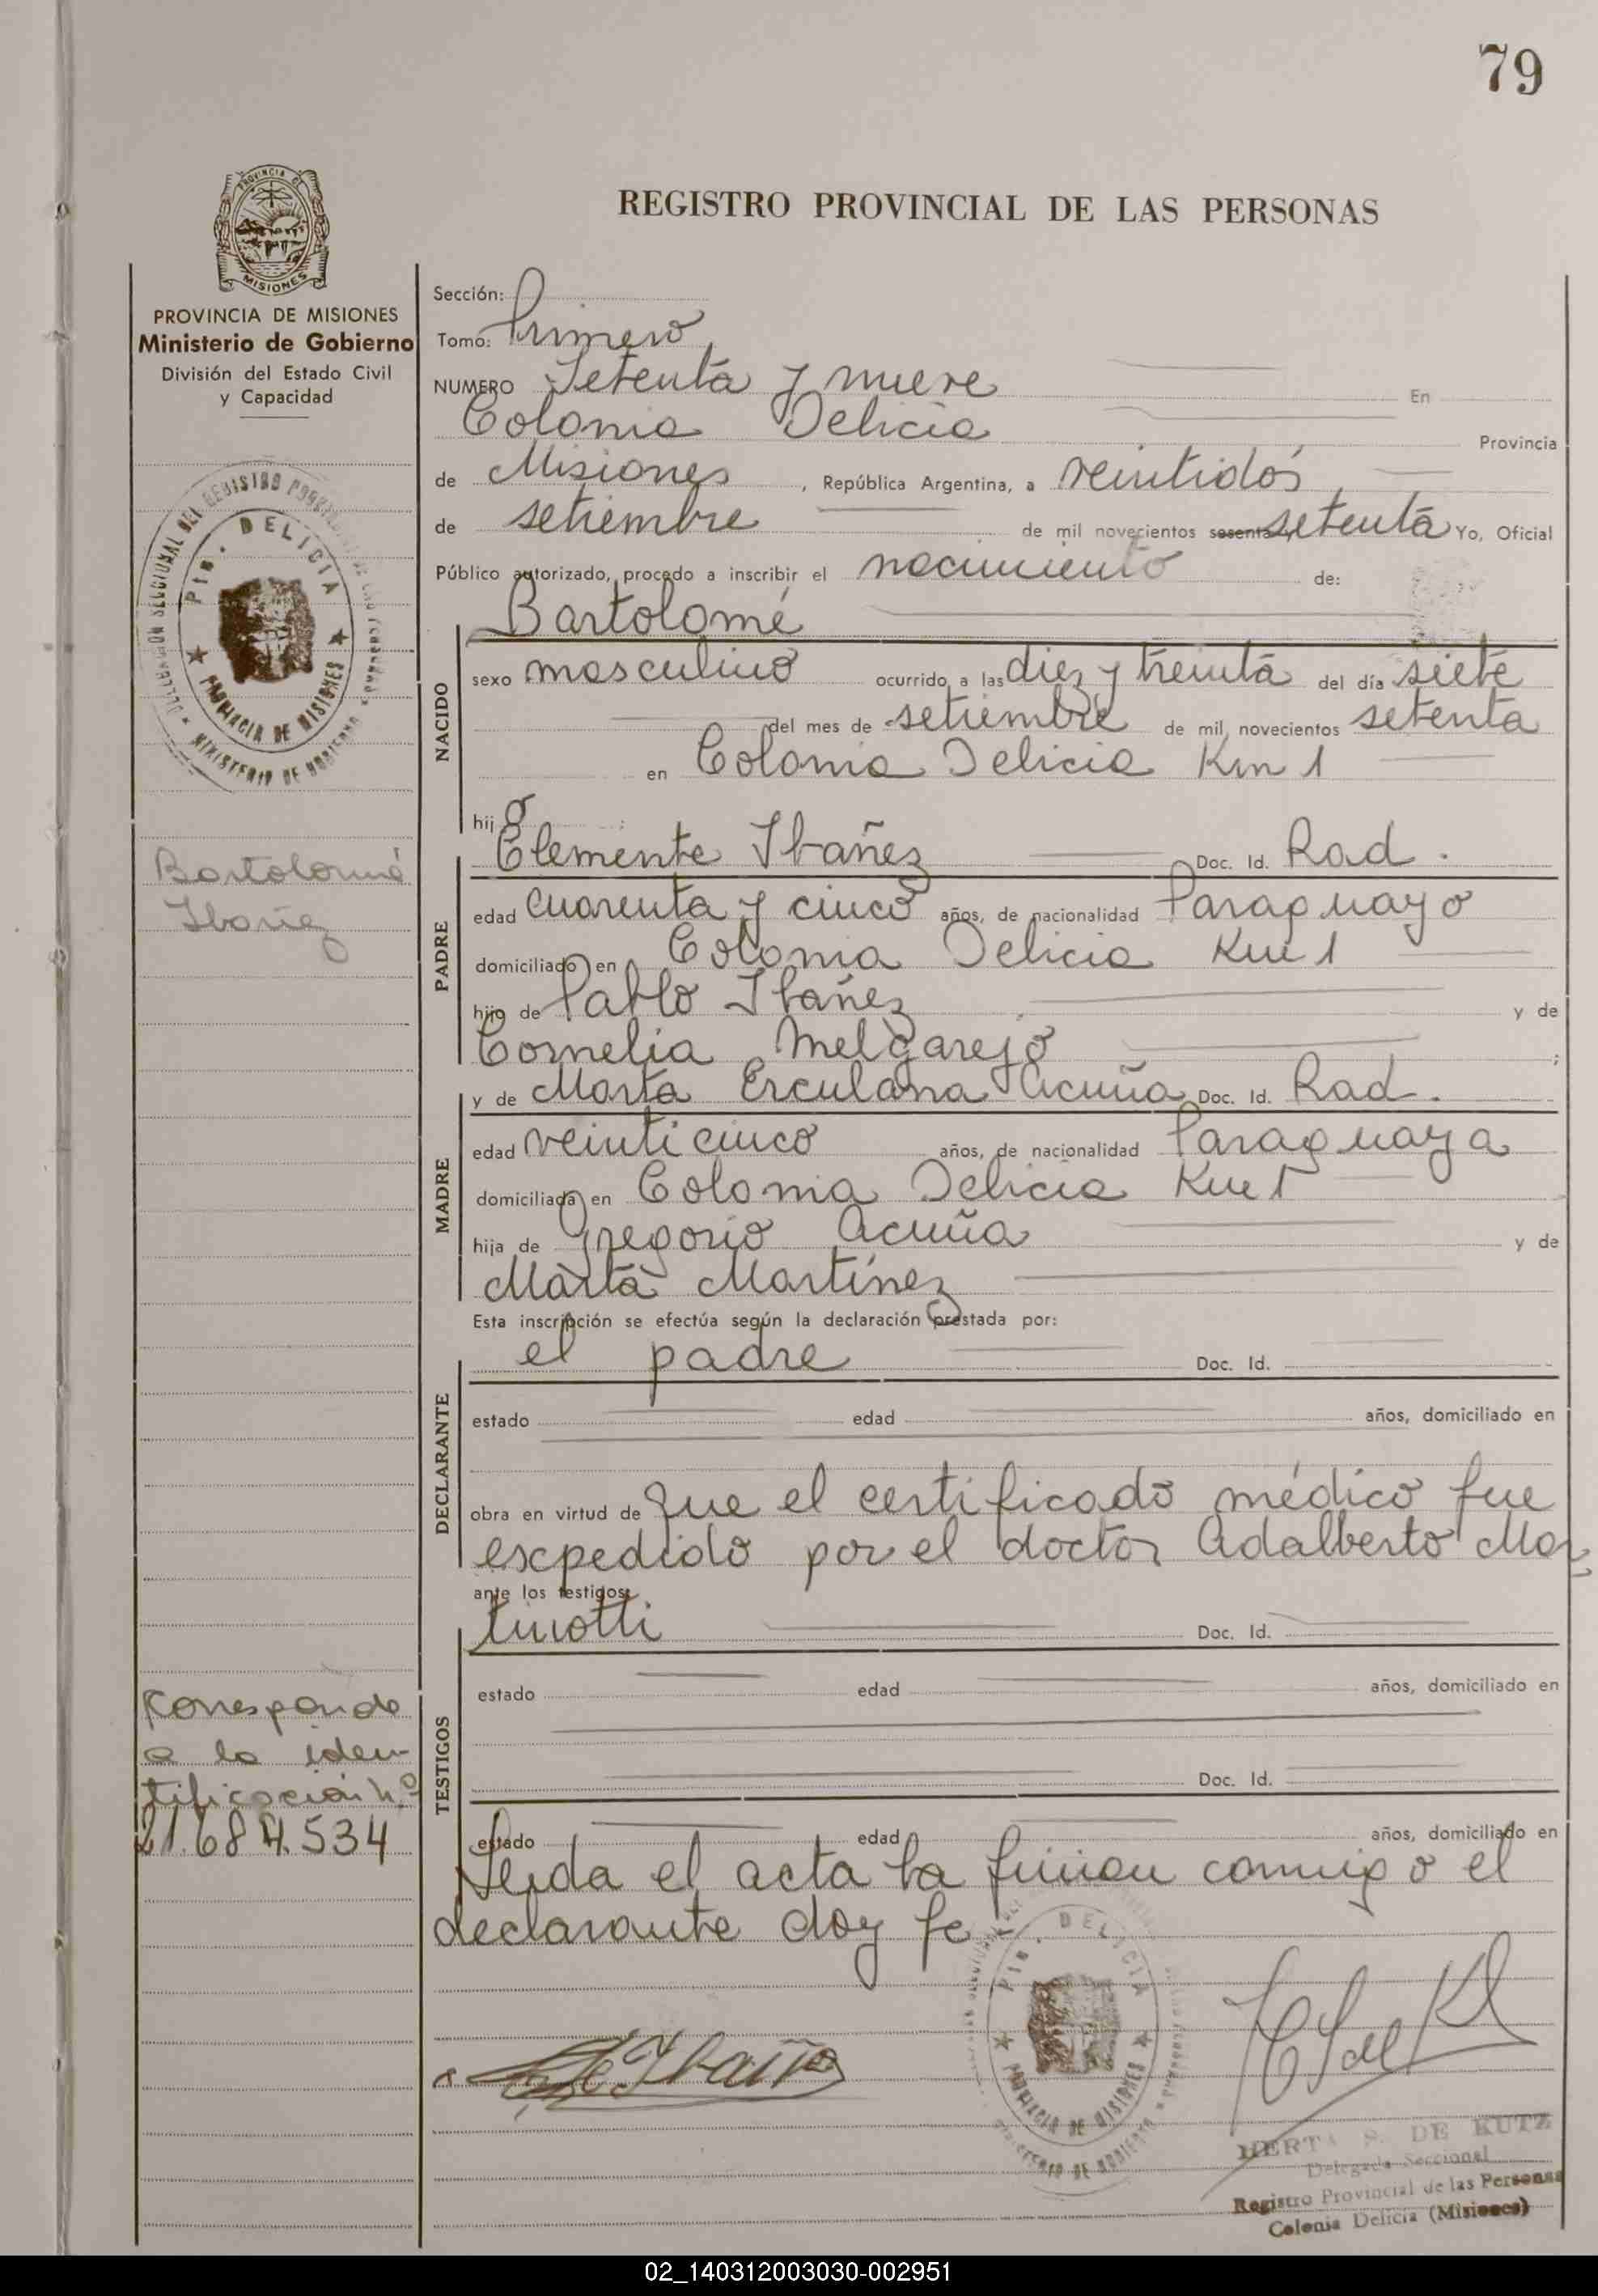 79
PROVINCIA DE
MISIONES
REGISTRO PROVINCIAL DE LAS PERSONAS
PROVINCIA DE MISIONES
Ministerio de Gobierno
División del Estado Civil
y Capacidad
Sección:
Tomo: Primero
NUMERO Setenta y nueve En
Colonia Delicia Provincia
de Misiones, República Argentina, a veintidós
de setiembre de mil novecientos sesenta setenta Yo, Oficial
Público autorizado, procedo a inscribir el nacimiento de:
Bartolomé
NACIDO
sexo masculino ocurrido a las diez y treinta del día siete
del mes de setiembre de mil novecientos setenta
en Colonia Delicia Km 1
hijo
Clemente Ibañez Doc. Id. Rad.
PADRE
edad cuarenta y cinco años, de nacionalidad Paraguayo
domiciliado en Colonia Delicia Km 1
hijo de Pablo Ibañez y de
Cornelia Melgarejo ;
y de Marta Erculana Acuña Doc. Id. Rad.
MADRE
edad veinticinco años, de nacionalidad Paraguaya
domiciliada en Colonia Delicia Km 1
hija de Gregorio Acuña y de
Marta Martínez
Esta inscripción se efectúa según la declaración prestada por:
el padre Doc. Id.
DECLARANTE
estado edad años, domiciliado en
obra en virtud de que el certificado médico fue
expedido por el doctor Adalberto Mar
ante los testigos:
tinotti Doc. Id.
TESTIGOS
estado edad años, domiciliado en
Doc. Id.
estado edad años, domiciliado en
Leida el acta la firman conmigo el
declarante doy fe
PTO. DELICIA
PROVINCIA DE MISIONES
Bartolomé
Ibañez
Corresponde
a la iden-
tificación Nº
21.684.534
Ibañe
PTO. DELICIA
PROVINCIA DE MISIONES
HERTA S. DE KUTZ
Delegada Seccional
Registro Provincial de las Personas
Colonia Delicia (Misiones)
02_140312003030-002951